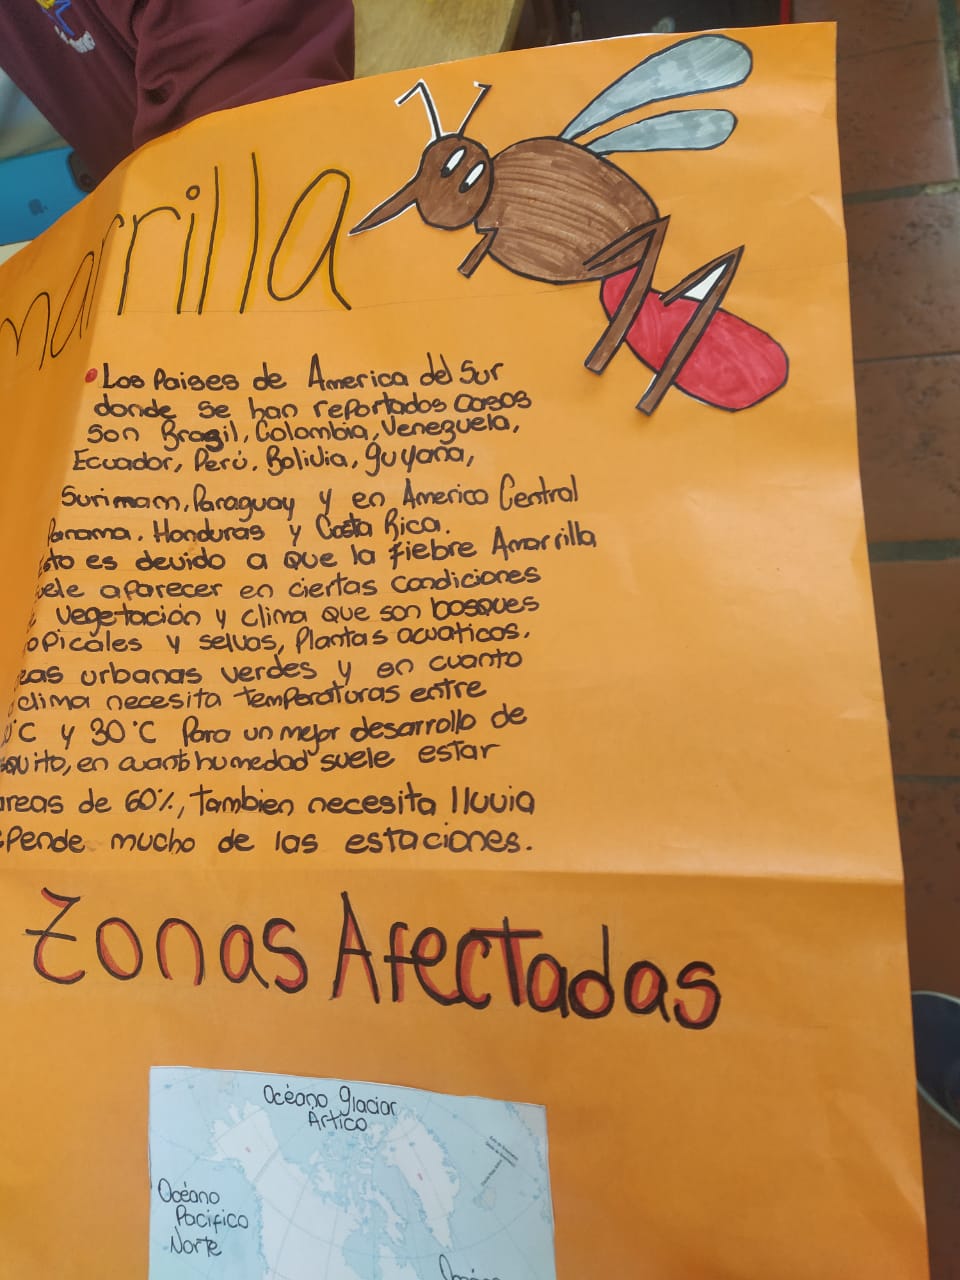 marrilla
Los Paises de America del Sur
donde se han reportados casos
son Brasil, Colombia, Venezuela,
Ecuador, Perú, Bolivia, guyana,
Surimam, Paraguay y en America Central
Panama, Honduras y Costa Rica.
sto es devido a que la fiebre Amarrilla
uele aparecer en ciertas condiciones
vegetación y clima que son bosques
opicales y selvas, Plantas acuaticos,
eas urbanas verdes y en cuanto
clima necesita temperaturas entre
°C y 30°C Para un mejor desarrollo de
squito, en cuanto humedad suele estar
areas de 60%, tambien necesita lluvia
epende mucho de las estaciones.
Zonas Afectadas
Océano glaciar
Artico
Océano
Pacifico
Norte